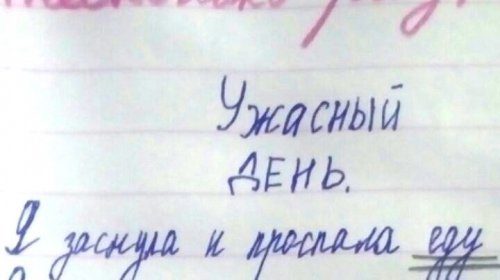 Ужасный
День.
Я заснула и проспала еду